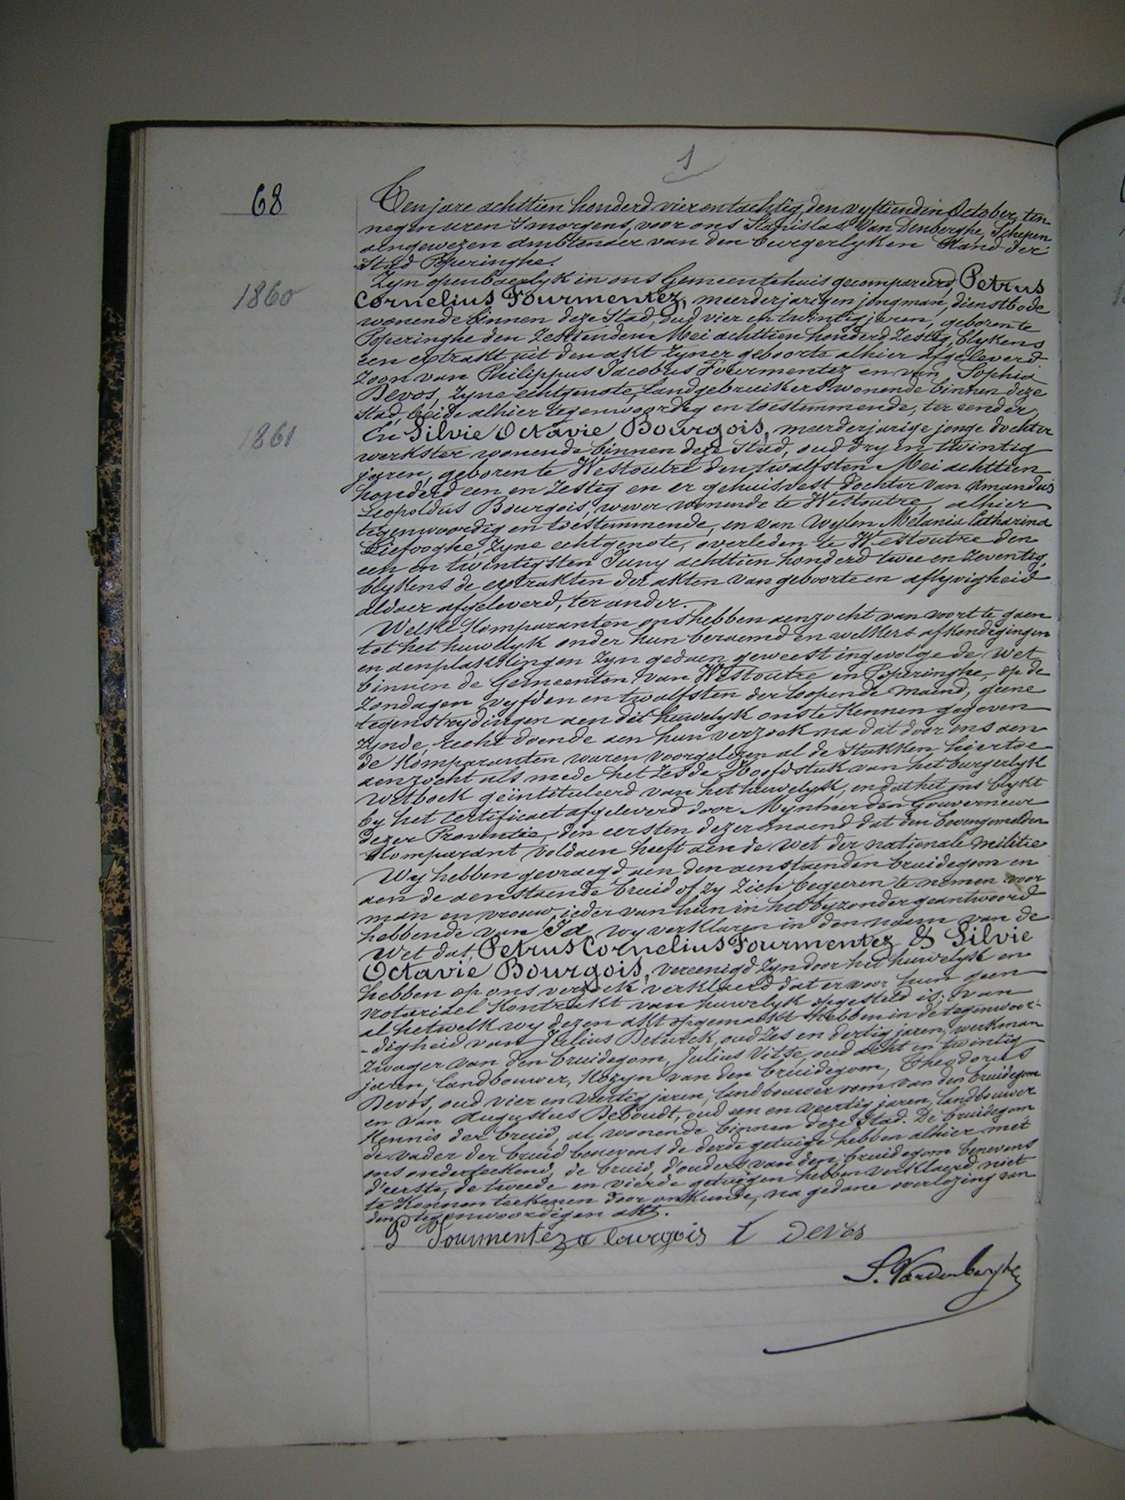 1
68
Ten jare achttien honderd vier en tachtig, den vyftienden October, ten
negen uren 's morgens, voor ons Stanislas Van Denberghe, Schepen
aengewezen ambtenaer van den burgerlyken Stand der
Stad Poperinghe.
Zyn openbaerlyk in ons Gemeentehuis gecompareerd, Petrus
1860
Cornelius Fourmentez, meerderjarigen jongman, dienstbode
wonende binnen deze Stad, oud vier en twintig jaren, geboren te
Poperinghe den Zestienden Mei achttien honderd Zestig, blykens
een extrakt uit den akt zyner geboorte alhier afgeleverd
Zoon van Philippus Jacobus Fourmentez en van Sophia
Devos, zyne echtgenote, landgebruikers wonende binnen deze
Stad, beide alhier tegenwoordig en toestemmende, ter eender,
1861
En Silvie Octavie Bourgois, meerderjarige jonge dochter
werkster wonende binnen deze Stad, oud dry en twintig
jaren, geboren te Westoutre den twalfsten Mei achttien
honderd een en Zestig en er gehuisvest dochter van Amandus
Leopoldus Bourgois, wever wonende te Westoutre, alhier
tegenwoordig en toestemmende, en van wylen Mélanie Catharina
Liefooghe, zyne echtgenote, overleden te Westoutre den
een en twintigsten Juny achttien honderd twee en Zeventig,
blykens de extrakten der akten van geboorte en aflyvigheid
aldaer afgeleverd, ter ander.
Welke Komparanten ons hebben aenzocht van voort te gaen
tot het huwelyk onder hun beraemd en welkers afkondigingen
en aenplakkingen zyn gedaen geweest ingevolge de wet
binnen de Gemeenten van Westoutre en Poperinghe, op de
Zondagen vyfden en twalfsten der loopende maend, geene
tegenstrydingen aen dit huwelyk ons te kennen gegeven
zynde, recht doende aen hun verzoek na dat door ons aen
de Komparanten waren voorgelezen al de Stukken hiertoe
aenzocht als mede het Zesde Hoofdstuk van het burgerlyk
Wetboek geïntituleerd van het huwelyk, en dat het ons blykt
by het certificaet afgeleverd door Mynheer den Gouverneur
dezer Provintie, den eersten dezer maend dat den bovengemelden
Komparant voldaen heeft aen de wet der nationale militie
Wy hebben gevraegd aen den aenstaenden bruidegom en
aen de aenstaende bruid of zy zich begeeren te nemen voor
man en vrouw, ieder van hun in het byzonder geantwoord
hebbende van Ja, wy verklaren in den naem van de
Wet dat, Petrus Cornelius Fourmentez & Silvie
Octavie Bourgois, vereenigd zyn door het huwelyk en
hebben op ons verzoek verklaerd dat er voor hun geen
notariëel Kontrakt van huwelyk opgesteld is; van
al hetwelk wy dezen akt opgemaekt hebben in de tegenwoor-
-digheid van Julius Deturck, oud Zes en dertig jaren, werkman
Zwager van den bruidegom, Julius Vitse, oud acht en twintig
jaren, landbouwer, Kozyn van den bruidegom, Theodorus
Devos, oud vier en veertig jaren, landbouwer oom van den bruidegom
en van Augustus Deboudt, oud een en veertig jaren, landbouwer
Kennis der bruid, al wonende binnen deze Stad. De bruidegom
de vader der bruid benevens de derde getuige hebben alhier met
ons onderteekend, de bruid, d'ouders van den bruidegom benevens
d'eerste, de tweede en vierde getuigen hebben verklaerd niet
te Konnen teekenen door onkunde, na gedane overlezing van
den tegenwoordigen akt.
P Fourmentez a bourgois t Devos
S. Vandenberghe